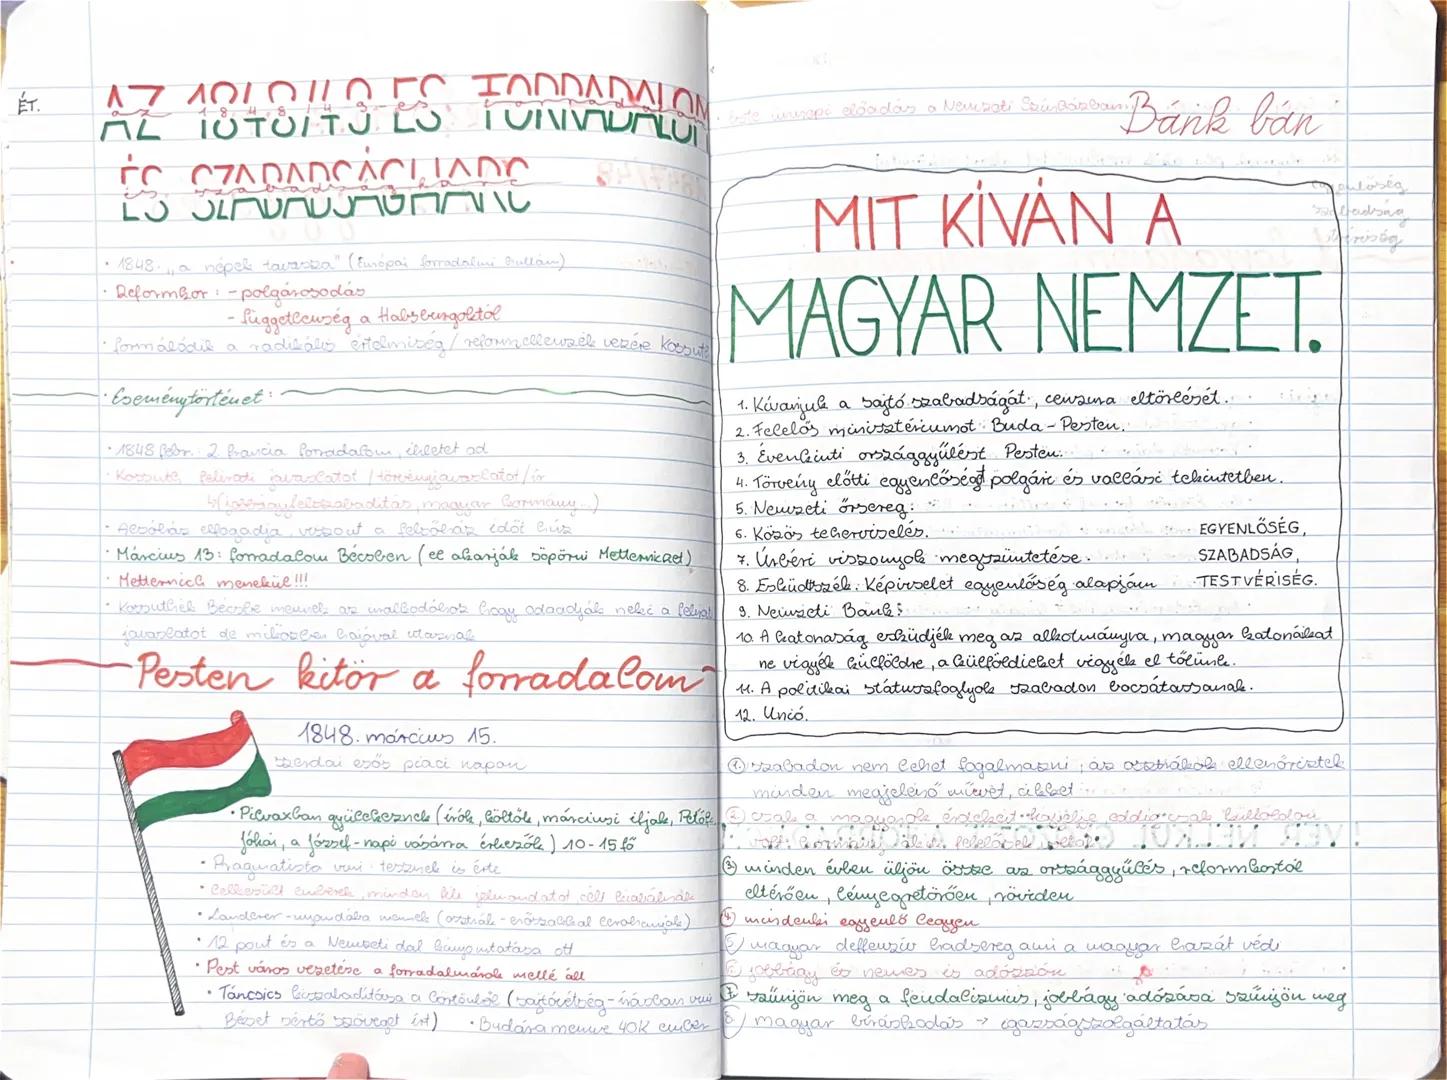 ÉT.
AZ 1848/49-ES FORRADALOM
ÉS SZABADSÁGHARC
· 1848. „a népek tavasza" (Európai forradalmi hullám)
· Reformkor: - polgárosodás
- függetlenség a Habsburgoktól
· formálódik a radikális értelmiség / reformellenzék vezére Kossuth
· Eseménytörténet:
· 1848 febr. 2. francia forradalom, ihletet ad
· Kossuth felirati javaslatot /törvényjavaslatot/ ír
(jobbágyfelszabadítás, magyar kormány...)
· Alsóház elfogadja, viszont a felsőház időt húz
· Március 13: forradalom Bécsben (el akarják söpörni Metternichet)
· Metternich menekül!!!
· Kossuthék Bécsbe mennek az uralkodóhoz hogy odaadják neki a felirati
javaslatot de miközben hajóval utaznak
Pesten kitör a forradalom
1848. március 15.
szerdai esős piaci napon
· Pilvaxban gyülekeznek (írók, költők, márciusi ifjak, Petőfi
Jókai, a József-napi vásárra érkezők) 10-15 fő
· Pragmatista vmi - tesznek is érte
· Lelkesült emberek, minden féle jelmondatot célt kiabálnak
· Landerer-nyomdába mennek (osztrák - erőszakkal lerohanják)
· 12 pont és a Nemzeti dal kinyomtatása ott
· Pest város vezetése a forradalmárok mellé áll
· Táncsics kiszabadítása a börtönből (sajtóvétség - írásban vmi
Bécset sértő szöveget írt) · Budára menve 40K ember
· Este ünnepi előadás a Nemzeti Színházban: Bánk bán
egyenlőség
szabadság
testvériség
MIT KÍVÁN A
MAGYAR NEMZET.
1. Kívánjuk a sajtó szabadságát, cenzura eltörlését.
2. Felelős minisztériumot Buda-Pesten.
3. Évenkinti országgyűlést Pesten.
4. Törvény előtti egyenlőséget polgári és vallási tekintetben.
5. Nemzeti őrsereg.
6. Közös teherviselés.
7. Úrbéri viszonyok megszüntetése.
8. Esküdtszék. Képviselet egyenlőség alapján
9. Nemzeti Bank.
EGYENLŐSÉG,
SZABADSÁG,
TESTVÉRISÉG.
10. A katonaság esküdjék meg az alkotmányra, magyar katonáinkat
ne vigyék külföldre, a külföldieket vigyék el tőlünk.
11. A politikai státuszfoglyok szabadon bocsátassanak.
12. Unió.
① szabadon nem lehet fogalmazni, az osztrákok ellenőriztek
minden megjelenő művet, cikket
② csak a magyarok érdekeit képviselje eddig csak külföldön
volt kormány
③ minden évben üljön össze az országgyűlés, reformkortól
eltérően, lényegretörően, röviden
④ mindenki egyenlő legyen
⑤ magyar deffenzív hadsereg ami a magyar hazát védi
⑥ jobbágy és nemes is adózzon
⑦ szűnjön meg a feudalizmus, jobbágy adózása szűnjön meg
⑧ magyar bíráskodás → igazságszolgáltatás